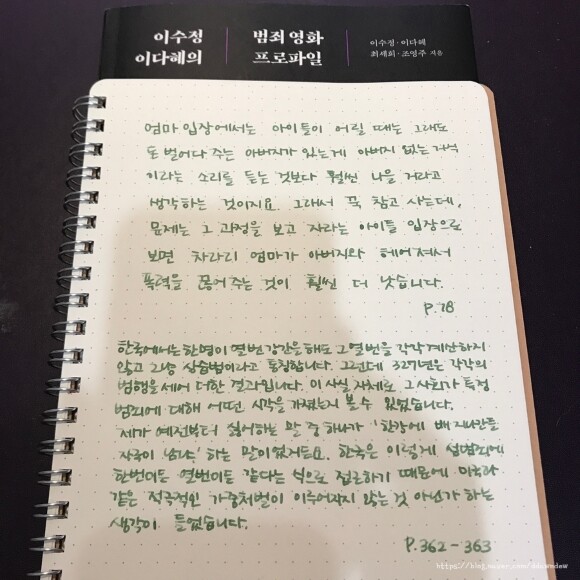 이수정 이다혜의
범죄 영화 프로파일
이수정·이다혜
최세희·조영주 지음
엄마 입장에서는 아이들이 어릴 때는 그래도
돈 벌어다 주는 아버지가 있는게 아버지 없는 자식
이라는 소리를 듣는 것보다 훨씬 나을 거라고
생각하는 것이지요. 그래서 꾹 참고 사는데,
문제는 그 과정을 보고 자라는 아이들 입장으로
보면 차라리 엄마가 아버지와 헤어져서
폭력을 끊어 주는 것이 훨씬 더 낫습니다.
P.78
한국에서는 한명이 열번 강간을 해도 그 열번을 각각 계산하지
않고 그냥 상습범이라고 통칭합니다. 그런데 327년은 각각의
범행을 세어 더한 결과입니다. 이 사실 자체로 그 사회가 특정
범죄에 대해 어떤 시각을 가졌는지 볼 수 있었습니다.
제가 예전부터 싫어하는 말 중 하나가 '한강에 배 지나간들
자국이 남냐' 하는 말이었거든요. 한국은 이렇게 성범죄에
한번이든 열번이든 같다는 식으로 접근하기 때문에 미국과
같은 적극적인 가중처벌이 이루어지지 않는 것 아닌가 하는
생각이 들었습니다.
P.362-363